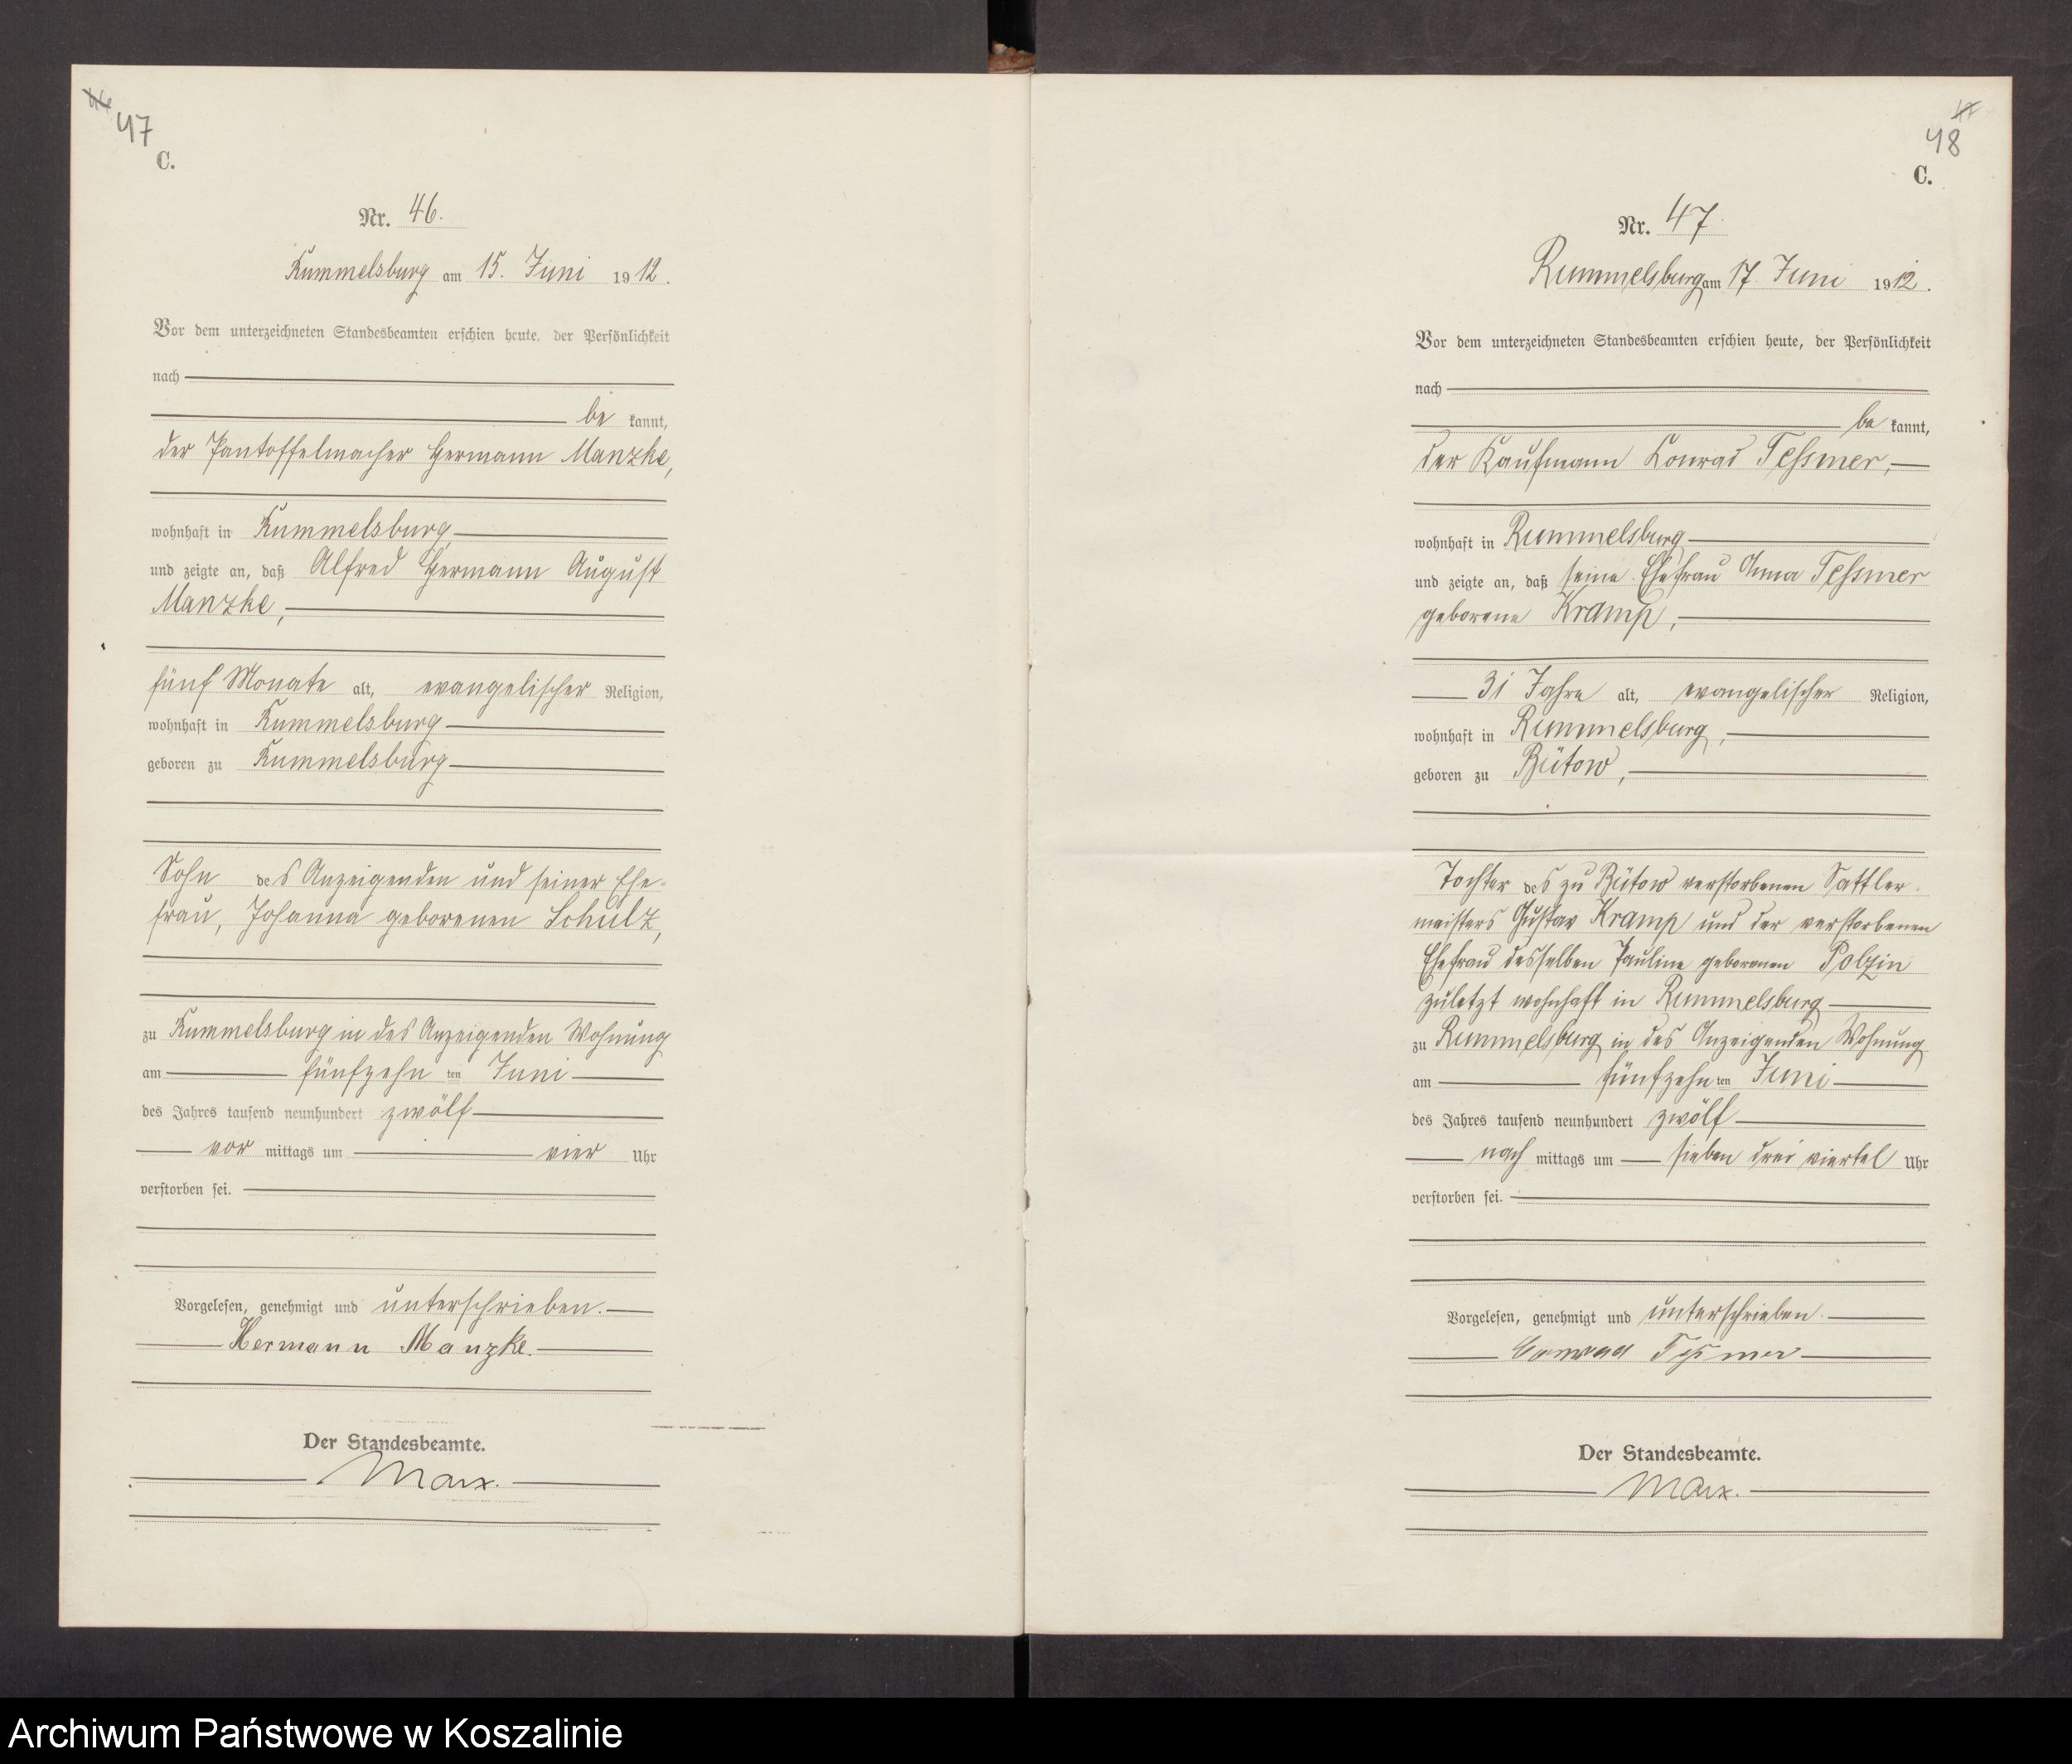 46
47
C.
Nr. 46.
Rummelsburg am 15. Juni 1912.
Vor dem unterzeichneten Standesbeamten erschien heute, der Persönlichkeit
nach
be kannt,
der Pantoffelmacher Hermann Manzke,
wohnhaft in Rummelsburg,
und zeigte an, daß Alfred Hermann August
Manzke,
fünf Monate alt, evangelischer Religion,
wohnhaft in Rummelsburg
geboren zu Rummelsburg
Sohn des Anzeigenden und seiner Ehe-
frau, Johanna geborenen Schulz,
zu Rummelsburg in des Anzeigenden Wohnung
am fünfzehn ten Juni
des Jahres tausend neunhundert zwölf
vor mittags um vier Uhr
verstorben sei.
Vorgelesen, genehmigt und unterschrieben.
Hermann Manzke.
Der Standesbeamte.
Marx.
47
48
C.
Nr. 47.
Rummelsburg am 17. Juni 1912.
Vor dem unterzeichneten Standesbeamten erschien heute, der Persönlichkeit
nach
be kannt,
der Kaufmann Conrad Teßmer,
wohnhaft in Rummelsburg
und zeigte an, daß seine Ehefrau Anna Teßmer
geborene Kramp,
31 Jahre alt, evangelischer Religion,
wohnhaft in Rummelsburg,
geboren zu Bütow,
Tochter des zu Bütow verstorbenen Sattler-
meisters Gustav Kramp und der verstorbenen
Ehefrau desselben Pauline geborenen Polzin
zuletzt wohnhaft in Rummelsburg
zu Rummelsburg in des Anzeigenden Wohnung
am fünfzehn ten Juni
des Jahres tausend neunhundert zwölf
nach mittags um sieben drei viertel Uhr
verstorben sei.
Vorgelesen, genehmigt und unterschrieben.
Conrad Teßmer
Der Standesbeamte.
Marx.
Archiwum Państwowe w Koszalinie